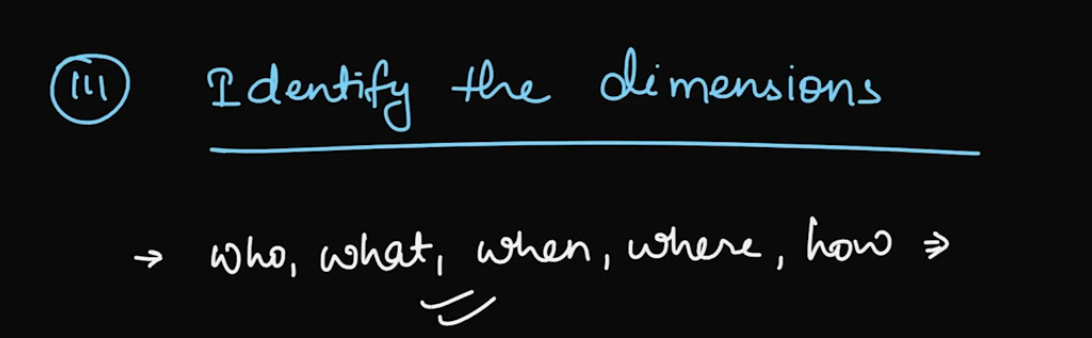 III Identify the dimensions
→ who, what, when, where, how ⇒